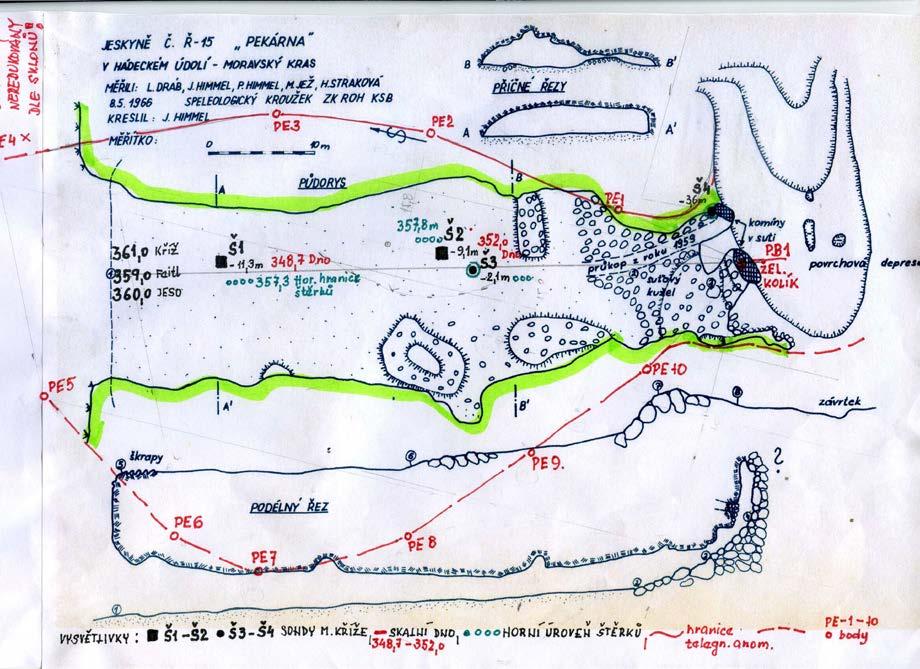 NEREDUKOVÁNY
DLE SKLONŮ!
JESKYNĚ Č. Ř-15 „PEKÁRNA"
V HÁDECKÉM ÚDOLÍ - MORAVSKÝ KRAS
MĚŘILI: L. DRÁB, J. HIMMEL, P. HIMMEL, M. JEŽ, H. STRAKOVÁ
8.5. 1966 SPELEOLOGICKÝ KROUŽEK ZK ROH KSB
KRESLIL: J. HIMMEL
MĚŘÍTKO:
0 10 m
B B'
PŘÍČNÉ ŘEZY
A A'
PE4 x
PE3
PE2
S
A
PŮDORYS
B
PE1
Š4
-36m
komíny
v suti
357,8m
Š2
-9,1m
352,0
Dno
Š3
-2,1m
průkop z roku 1959
suťový
kužel
PB1
ŽEL.
KOLÍK
povrchová depres
361,0 Kříž
359,0 Feitl
360,0 JESO
Š1
-11,3m 348,7 Dno
357,3 Hor. hranice
štěrků
PE5
A'
B'
PE10
7
8
závrtek
5
škrapy
6
PE9.
?
PODÉLNÝ ŘEZ
PE6
PE7
PE8
1
VYSVĚTLIVKY: Š1-Š2 Š3-Š4 SONDY M. KŘÍŽE, SKALNÍ DNO, HORNÍ ÚROVEŇ ŠTĚRKŮ
348,7-352,0
hranice
telegn. anom.
PE-1-10
body